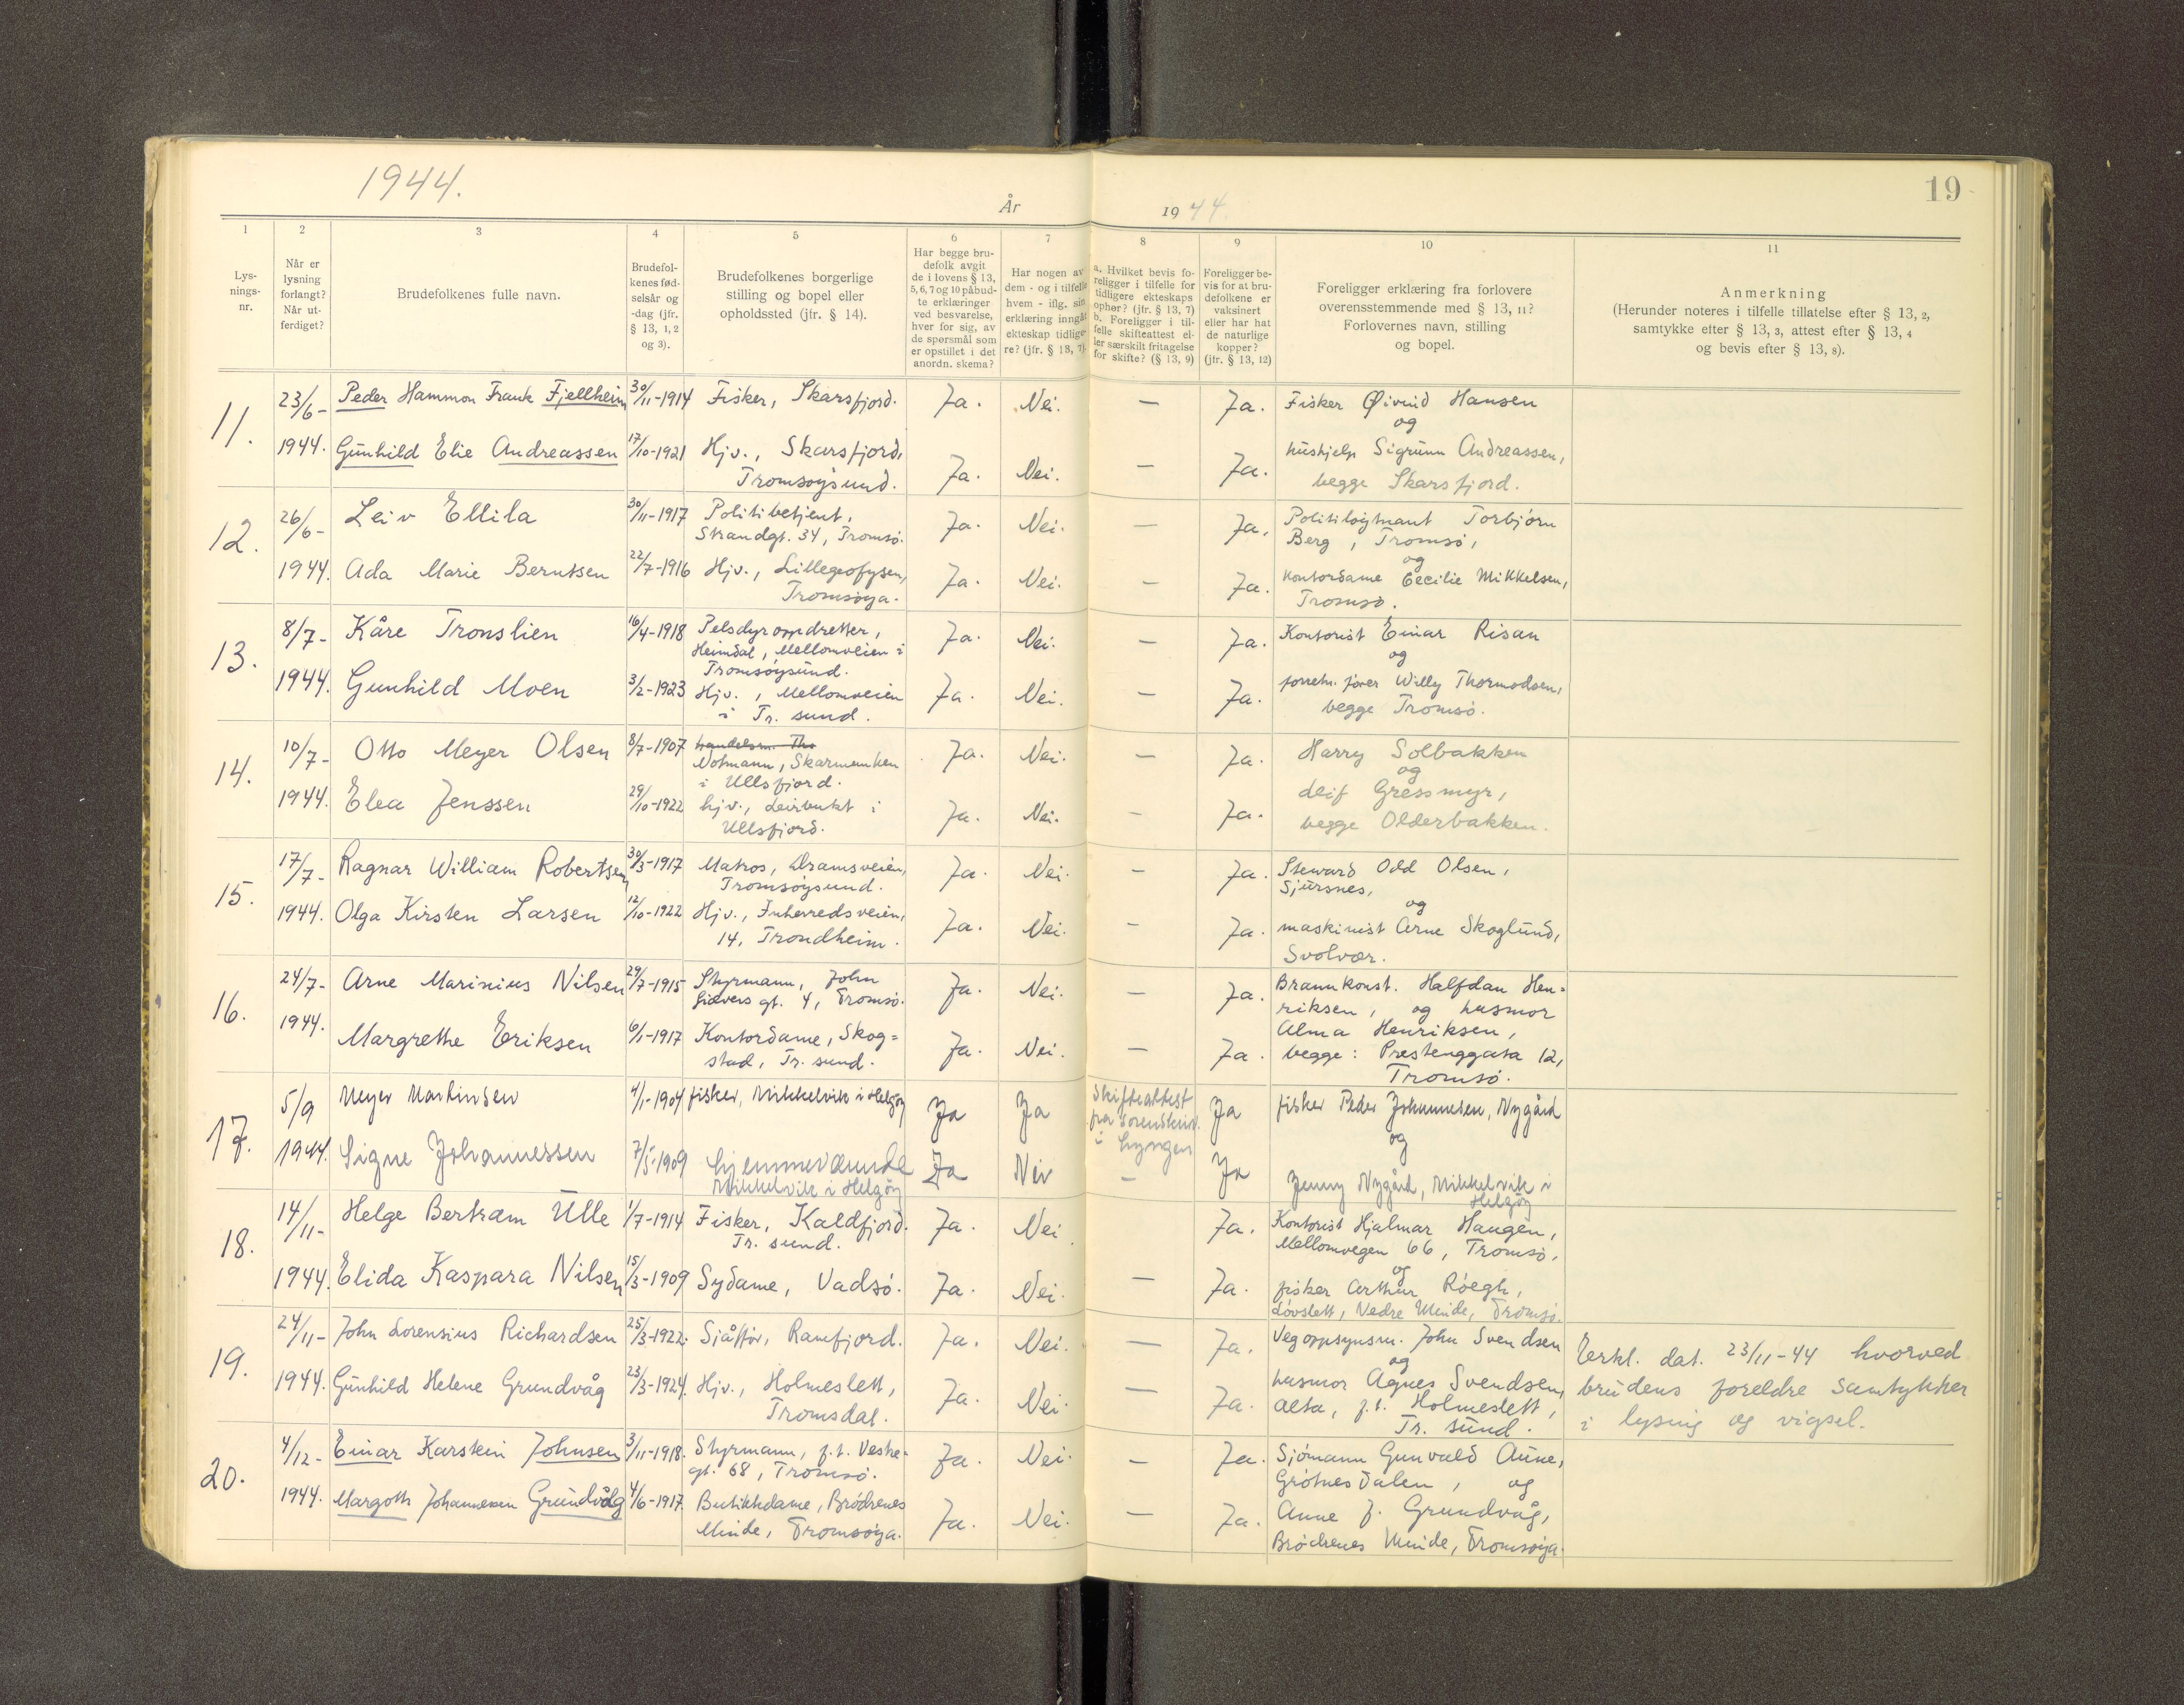 1944.
År
1944.
19
1
2
3
4
5
6
7
8
9
10
11
Lys-
nings-
nr.
Når er
lysning
forlangt?
Når ut-
ferdiget?
Brudefolkenes fulle navn.
Brudefol-
kenes fød-
selsår og
-dag (jfr.
§ 13, 1, 2
og 3).
Brudefolkenes borgerlige
stilling og bopel eller
opholdssted (jfr. § 14).
Har begge bru-
defolk avgit
de i lovens § 13,
5, 6, 7 og 10 påbud-
te erklæringer
ved besvarelse,
hver for sig, av
de spørsmål som
er opstillet i det
anordn. skema?
Har nogen av
dem - og i tilfelle
hvem - iflg. sin
erklæring inngåt
ekteskap tidlige-
re? (jfr. § 13, 7)
a. Hvilket bevis fo-
religger i tilfelle for
tidligere ekteskaps
ophør? (jfr. § 13, 7)
b. Foreligger i til-
felle skifteattest el-
ler særskilt fritagelse
for skifte? (§ 13, 9)
Foreligger be-
vis for at bru-
defolkene er
vaksinert
eller har hat
de naturlige
kopper?
(jfr. § 13, 12)
Foreligger erklæring fra forlovere
overensstemmende med § 13, 11?
Forlovernes navn, stilling
og bopel.
Anmerkning
(Herunder noteres i tilfelle tillatelse efter § 13, 2,
samtykke efter § 13, 3, attest efter § 13, 4
og bevis efter § 13, 8).
11.
23/6-
1944.
Peder Hammon Frank Fjellheim 30/11-1914 Fisker, Skarsfjord. Ja. Nei. — Ja. Fisker Øivind Hansen
og
Gunhild Elie Andreassen 17/10-1921 Hjv., Skarsfjord,
Tromsøysund. Ja. Nei. — Ja. hushjelp Sigrunn Andreassen,
begge Skarsfjord.
12.
26/6-
1944.
Leiv Ellila 30/11-1917 Politibetjent,
Strandgt. 34, Tromsø. Ja. Nei. — Ja. Politiløytnant Torbjørn
Berg, Tromsø,
og
Ada Marie Berntsen 22/7-1916 Hjv., Lillegeofysen,
Tromsøya. Ja. Nei. — Ja. kontordame Cecilie Mikkelsen,
Tromsø.
13.
8/7-
1944.
Kåre Tronslien 16/4-1918 Pelsdyroppdretter,
Heimdal, Mellomveien i
Tromsøysund. Ja. Nei. — Ja. Kontorist Einar Risan
og
Gunhild Moen 3/2-1923 Hjv., Mellomveien
i Tr. sund. Ja. Nei. — Ja. forretn. fører Willy Thormodsen,
begge Tromsø.
14.
10/7-
1944.
Otto Meyer Olsen 8/7-1907 handelsm. Tho
Notmann, Skarmunken
i Ullsfjord. Ja. Nei. — Ja. Harry Solbakken
og
Elea Jenssen 29/10-1922 hjv., Leirbukt i
Ullsfjord. Ja. Nei. — Ja. Leif Gressmyr,
begge Olderbakken.
15.
17/7-
1944.
Ragnar William Robertsen 30/3-1917 Matros, Dramsveien,
Tromsøysund. Ja. Nei. — Ja. Steward Odd Olsen,
Sjursnes,
og
Olga Kirsten Larsen 12/10-1922 Hjv., Inherredsveien,
14, Trondheim. Ja. Nei. — Ja. maskinist Arne Skoglund,
Svolvær.
16.
24/7-
1944.
Arne Marinius Nilsen 29/7-1915 Styrmann, John
Giævers gt. 4, Tromsø. Ja. Nei. — Ja. Brannkonst. Halfdan Hen-
riksen, og husmor
Margrethe Eriksen 6/1-1917 Kontordame, Skog=
stad, Tr. sund. Ja. Nei. — Ja. Alma Henriksen,
begge: Prestenggata 12,
Tromsø.
17.
5/9
1944.
Meyer Martinsen 4/1-1904 fisker, Mikkelvik i Helgøy Ja Ja Skifteattest
fra Sorenskriv.
i Lyngen Ja fisker Peder Johannesen, Nygård
og
Signe Johannessen 7/5-1909 hjemmeværende
Mikkelvik i Helgøy Ja Nei — Ja Jenny Nygård, Mikkelvik i
Helgøy
18.
14/11-
1944.
Helge Bertram Ulle 1/7-1914 Fisker, Kaldfjord.
Tr. sund. Ja. Nei. Ja. Kontorist Hjalmar Haugen,
Mellomvegen 66, Tromsø,
og
Elida Kaspara Nilsen 15/3-1909 Sydame, Vadsø. Ja. Nei. — Ja. fisker Arthur Røegh,
Løvslett, Nedre Minde, Tromsø.
19.
24/11-
1944.
John Lorensius Richardsen 25/3-1922. Sjåffør, Ramfjord. Ja. Nei. — Ja. Vegoppsynsm. John Svendsen
og
Gunhild Helene Grundvåg 23/3-1924. Hjv., Holmeslett,
Tromsdal. Ja. Nei. — Ja. husmor Agnes Svendsen,
Alta, f.t. Holmeslett,
Tr. sund.
Erkl. dat. 23/11-44 hvorved
brudens foreldre samtykker
i lysing og vigsel.
20.
4/12-
1944.
Einar Karstein Johnsen 3/11-1918. Styrmann, f.t. Vestre=
gt. 68, Tromsø. Ja. Nei. — Ja. Sjömann Gunvald Aune,
Grötnesdalen, og
Margoth Johannesen Grundvåg 4/6-1917. Butikkdame, Brödrenes
Minde, Tromsøya. Ja. Nei. — Ja. Anne J. Grundvåg,
Brödrenes Minde, Tromsøya.